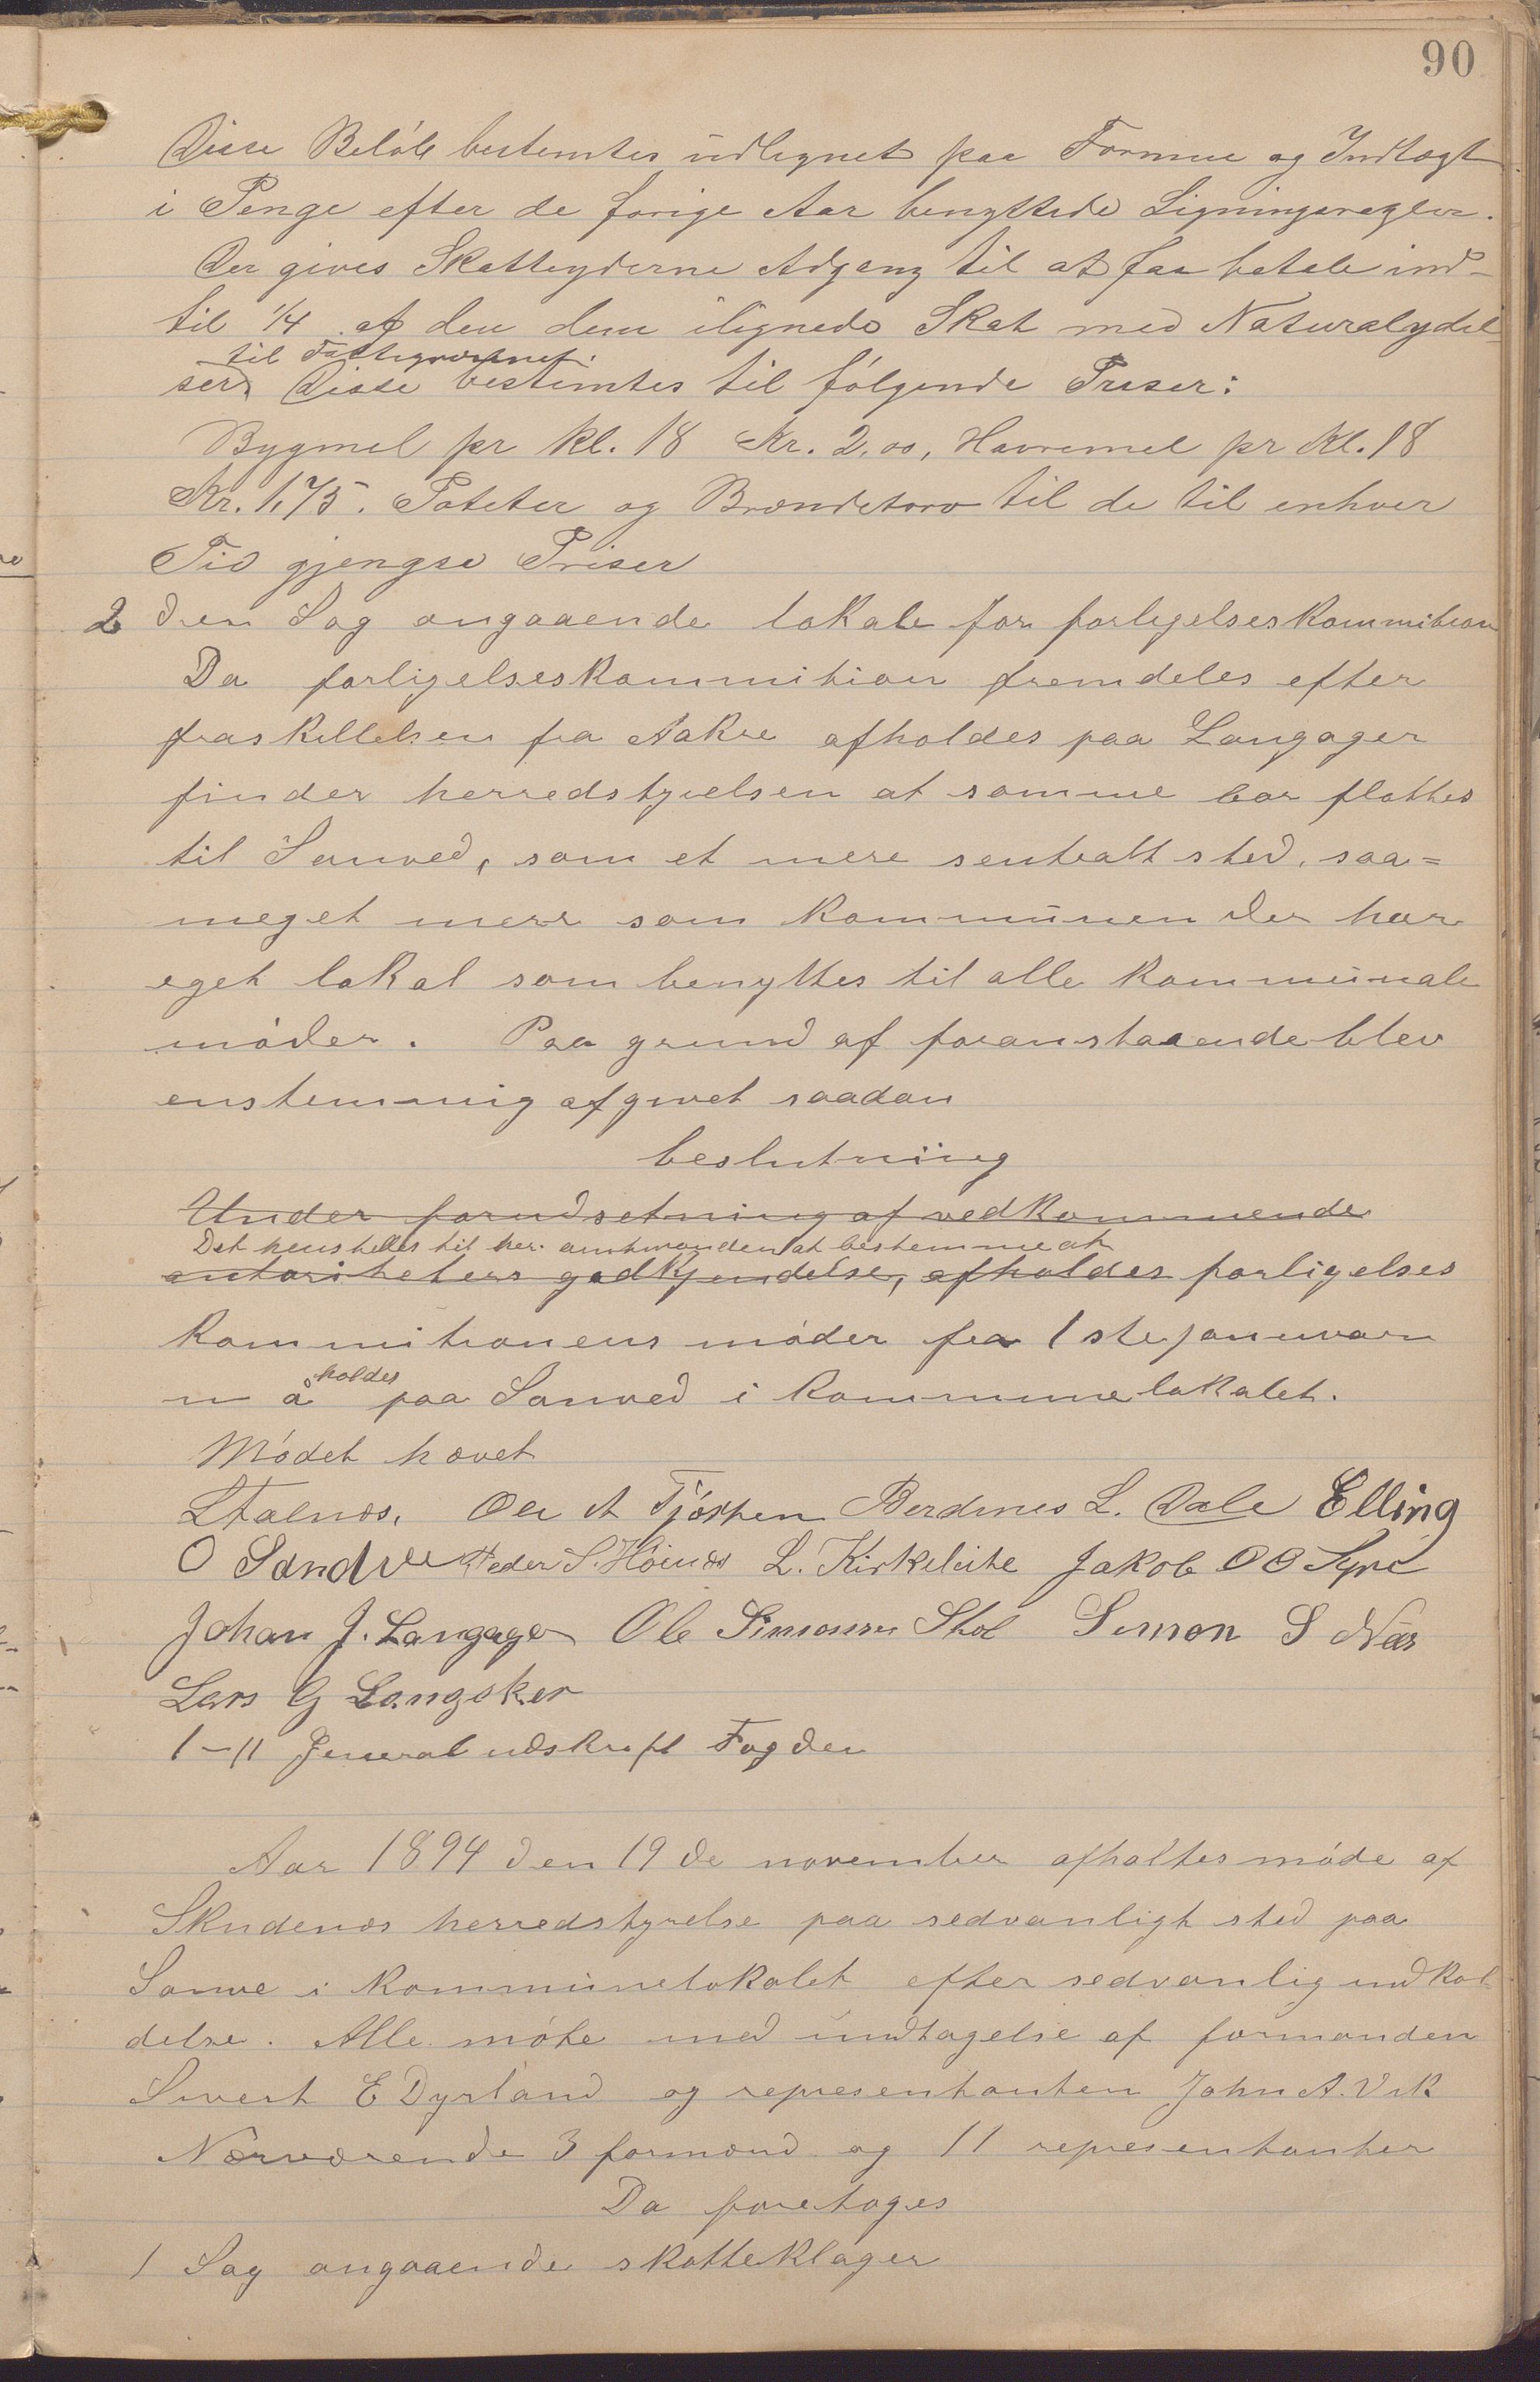 90
Disse Beløb bestemtes udlignet paa Formue og Indtægt
i Penge efter de forige Aar benyttede Ligningsregler.
Der gives Skatteyderne Adgang til at faa betale ind-
til 1/4 af den dem ilignede Skat med Naturalydel-
til Fattigvæsenet.
ser. Disse bestemtes til følgende Priser:
Bygmel pr Kl. 18 Kr. 2,00, Havremel pr Kl. 18
Kr. 1,75. Poteter og Brændetorv til de til enhver
Tid gjengse Priser
2 den Sag angaaende lokale for forligelseskommition
Da forligelseskommition fremdeles efter
fraskillelsen fra Aakre afholdes paa Langager
finder herredstyrelsen at samme bør fløttes
til Sanved, som et mere sentralt sted, saa=
meget merr som kommunen der har
eget lokal som benyttes til alle kommunale
møder. Paa grund af foranstaaende blev
enstemmig afgivet saadan
beslutning
Under forudsetning af vedkommende
Det henstilles til her. amtmanden at bestemme at
autoriteters godkjendelse, afholdes forligelses
kommitionens møder fra 1ste januvar
holdes
n å paa Sanved i kommunelokalet.
Mødet hævet
LFalnæs. Ole A Tjøsten Berdines L. Dale Elling
O Sandve Peder S. Høinæs L. Kirkeleite Jakob O O Syre
Johan J. Langager Ole Simonsen Stol Simon S Næs
Lars G Langaker
1-11 Jeneral udskrift Fogden
Aar 1894 den 19de november afholtes møde af
Skudenæs herredstyrelse paa sedvanligt sted paa
Sanve i kommunelokalet efter sedvanlig indkal-
delse. Alle møte med undtagelse af formanden
Sivert E Dyrland og representanten John A. Vik
Nærværende 3 formænd og 11 representanter
Da foretoges
1 Sag angaaende skatteklager